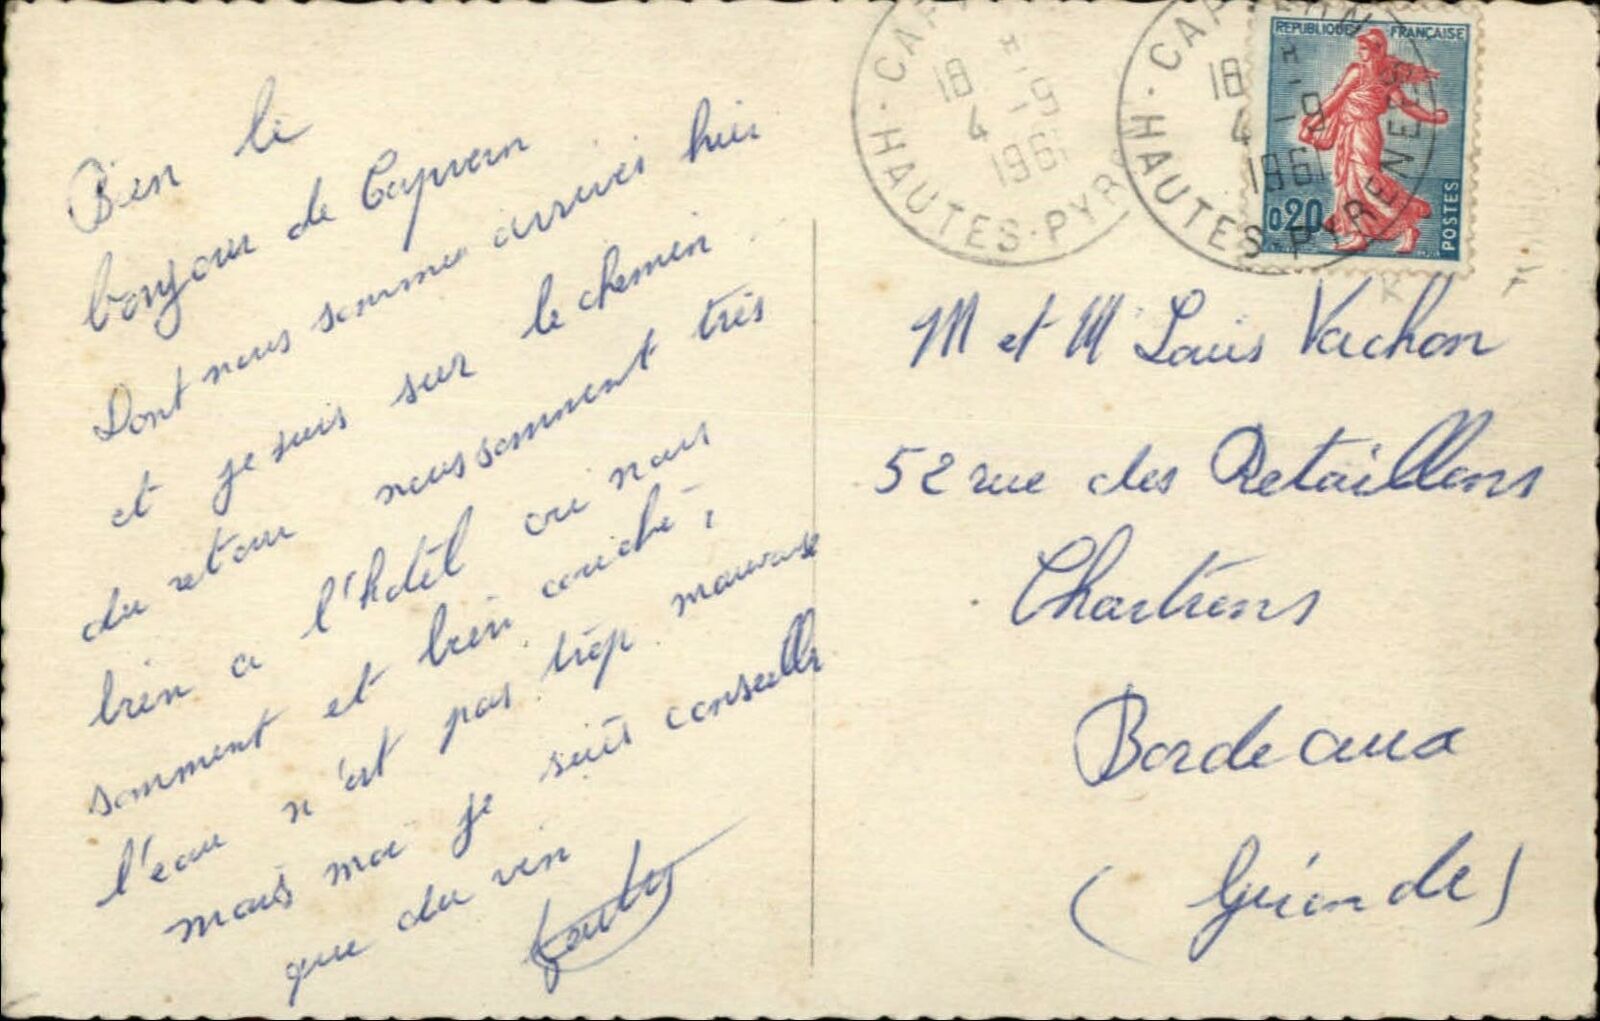 Bien le
bonjour de Capvern
Dont nous somme arrives hier
et je suis sur le chemin
du retour nous somment très
bien a l'hotel ou nous
somment et bien couché,
l'eau n'est pas trop mauvaise
mais moi je suis conseille
que du vin
HAUTES-PYR
18 H - 9
4
1961
CAPVERN
18 H - 9
4
1961
HAUTES-PYRENEES
REPUBLIQUE FRANÇAISE
0,20
POSTES
M et M Louis Vachon
52 rue des Retaillons
Chartrons
Bordeaux
(Gironde)